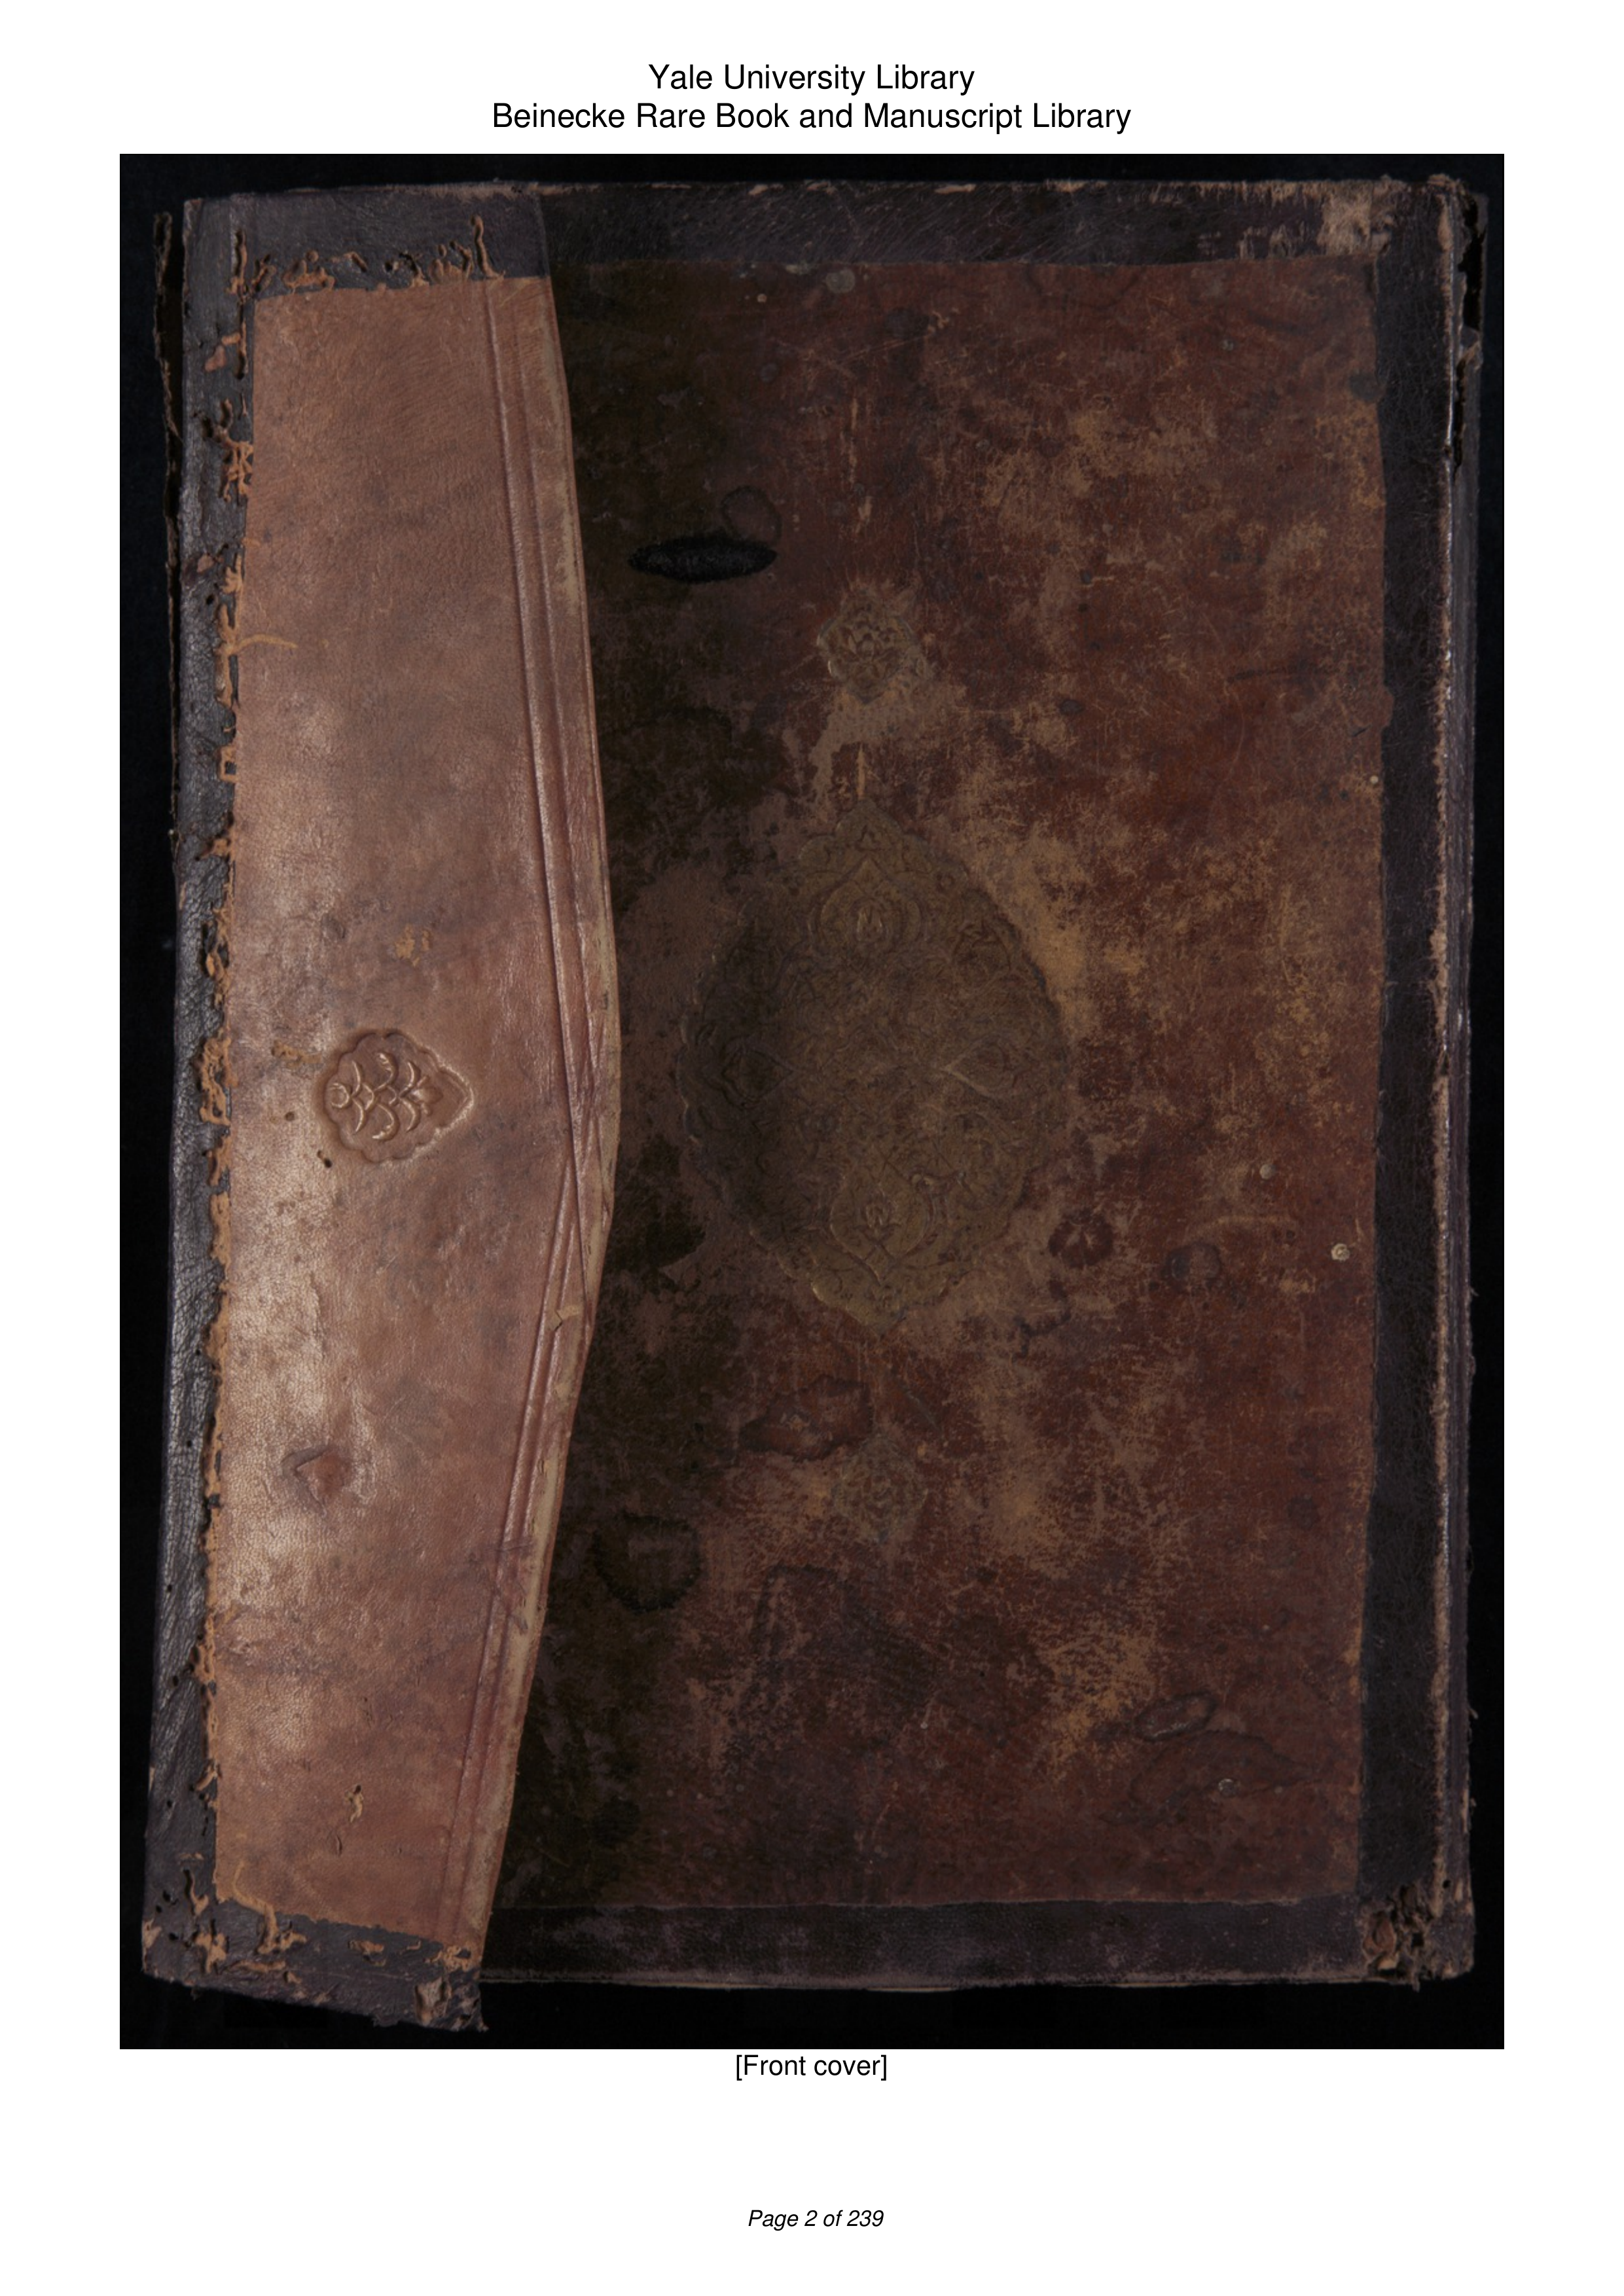 Yale University Library
Beinecke Rare Book and Manuscript Library
[Front cover]
Page 2 of 239